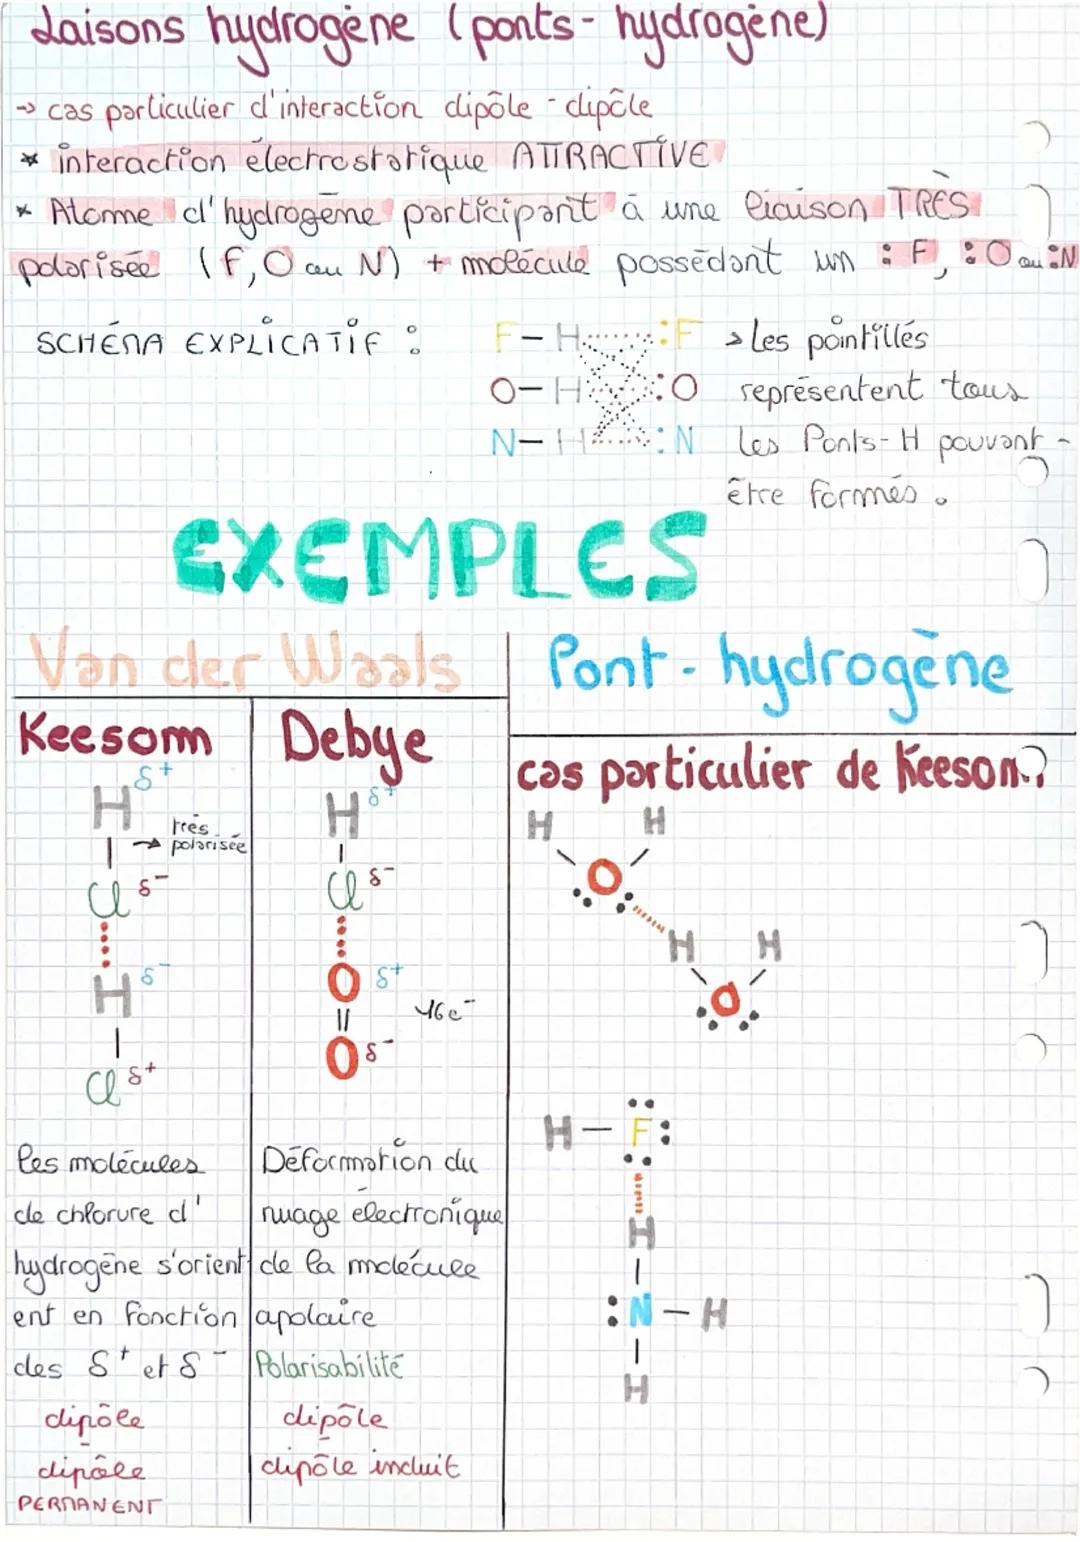 Liaisons hydrogène (ponts-hydrogène)
→ cas particulier d'interaction dipôle-dipôle
* interaction électrostatique ATTRACTIVE
* Atome d'hydrogène participant à une liaison TRÈS
polarisée (F, O ou N) + molécule possédant un :F, :O ou :N
SCHÉMA EXPLICATIF :
F-H :F
O-H :O
N-H :N
> Les pointillés
représentent tous
les Ponts-H pouvant-
être formés.
EXEMPLES
Van der Waals
Pont-hydrogène
Keesom
Debye
cas particulier de Keesom?
H δ+
très
→ polarisée
Cl δ-
H δ-
Cl δ+
les molécules
de chlorure d'
hydrogène s'orient
ent en fonction
des δ+ et δ-
dipôle
-
dipôle
PERMANENT
H δ+
Cl δ-
O δ+
16e-
O δ-
Déformation du
nuage électronique
de la molécule
apolaire
Polarisabilité
dipôle
-
dipôle induit
H H
O
H H
O
H-F:
H
:N-H
H